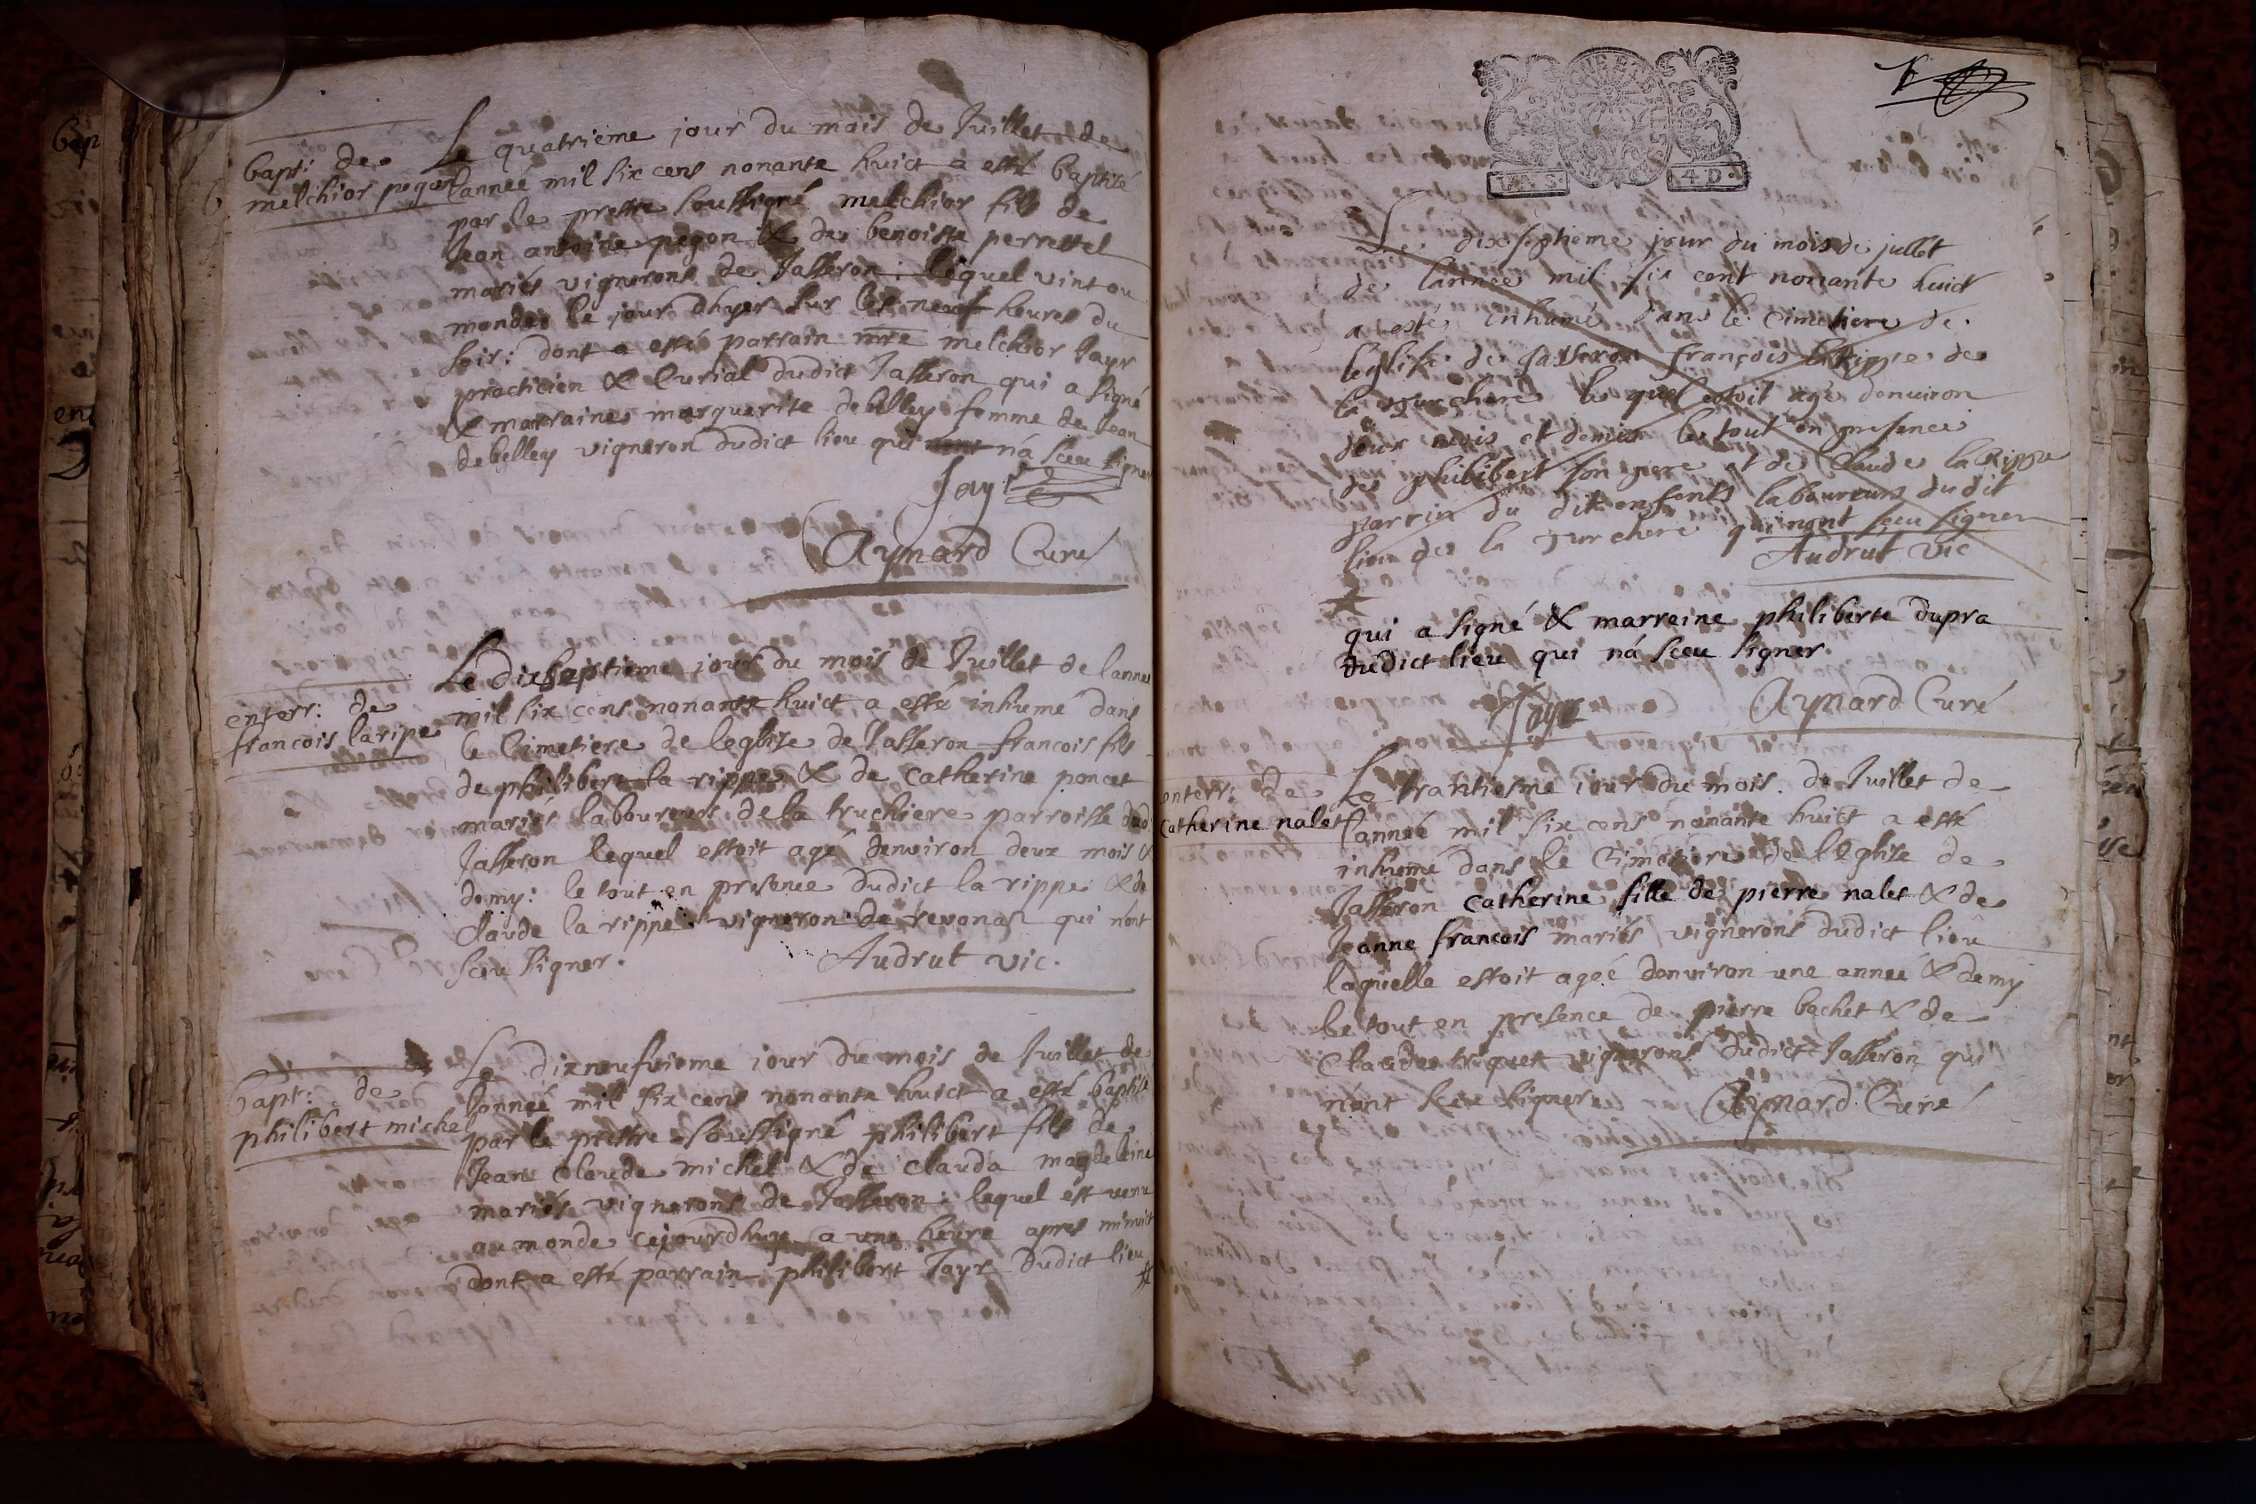 bapt: de
melchior pegon
Le quatrieme jour du mois de Juillet de
lanneé mil six cens nonante huict a esté baptisé
par le prestre soussigné melchior fils de
Jean antoine pegon & de benoiste perrettel
mariés vignerons de Jasseron: lequel vint au
monde le jour dhyer sur les neuf heures du
soir: dont a esté parrain mre melchior Jayr
practicien & Curial dudict Jasseron qui a signé
& marraine marguerite debelley femme de Jean
debelley vigneron dudict lieu qui ná sceu signer
Jayr
Aymard Curé
enterr: de
francois laripe
Le dixseptieme jour du mois de Juillet de lannee
mil six cens nonante huict a esté inhumé dans
le Cimetiere de leglise de Jasseron francois fils
de philibert la rippe & de Catherine poncet
mariés laboureurs de la truchiere parroisse dud
Jasseron lequel estoit agé denviron deux mois &
demy: le tout en presence dudict la rippe & de
claude la rippe vigneron de revonas qui nónt
sceu signer.
Audrut vic.
bapt: de
philibert michel
Le dixneufvieme jour du mois de Juillet de
lanneé mil six cens nonante huict a esté baptisé
par le prestre soussigné philibert fils de
Jean claude michel & de clauda magdeleine
mariés vignerons de Jasseron: lequel est venu
au monde cejourdhuy a une heure apres minuict
dont a esté parrain philibert Jayr dudict lieu
Le dixseptieme jour du mois de jullet
de lannee mil six cent nonante huict
a esté inhumé dans le Cimetiere de
leglise de Jasseron françois la Rippe de
la turchere le quel estoit agé denviron
deux mois et demis le tout en presence
de philibert son pere et de Claude la Rippe
parrin du dit enfent laboureurs du dit
lieu de la turchere qui nont sceu signer
Audrut vic
qui a signé & marreine philiberte dupra
dudict lieu qui ná sceu signer.
Jayr
Aymard Curé
enterr: de
Catherine nalet
Le trantiesme jour du mois de Juillet de
lanneé mil six cens nonante huict a esté
inhumé dans le Cimetiere de lEglise de
Jasseron catherine fille de pierre nalet & de
Jeanne francois mariés vignerons dudict lieu
laquelle estoit ageé denviron une anneé & demy
le tout en presence de pierre bachet & de
Claude triquet vignerons dudict Jasseron qui
nónt sceu signer
Aymard Curé
4 D.